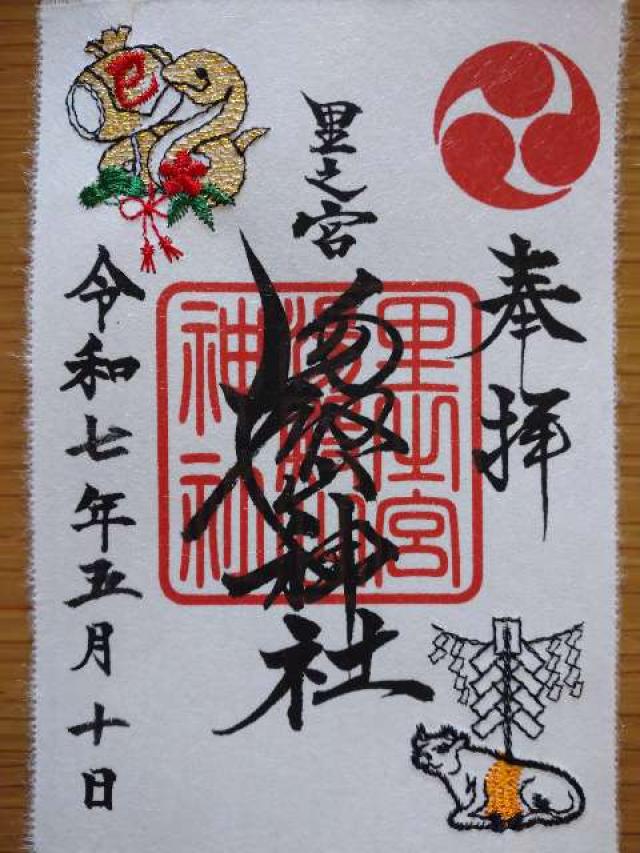 奉拝
里之宮
湯殿山神社
里之宮
湯殿山
神社
令和七年五月十日
巳